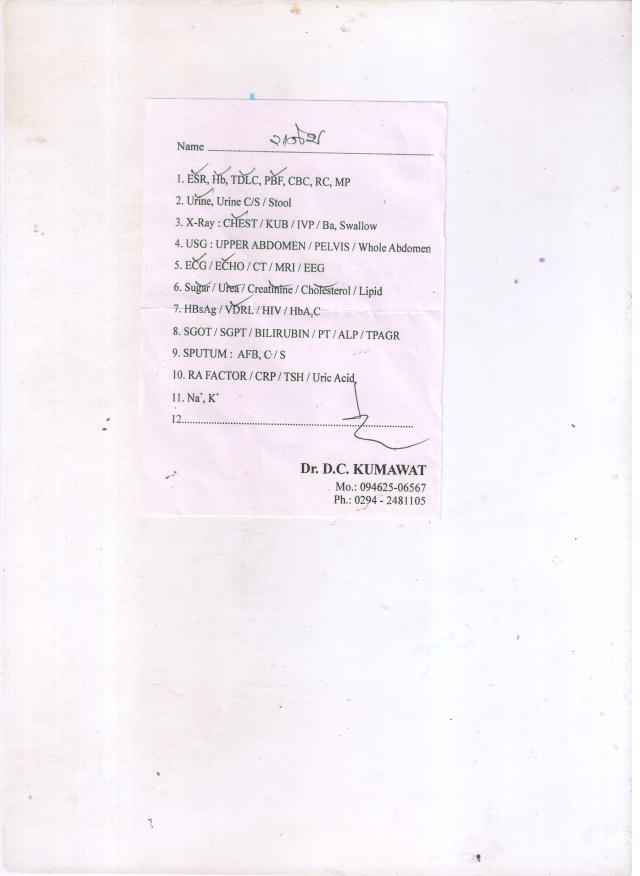 Name
1. ESR, Hb, TDLC, PBF, CBC, RC, MP
2. Urine, Urine C/S / Stool
3. X-Ray : CHEST / KUB / IVP / Ba, Swallow
4. USG : UPPER ABDOMEN / PELVIS / Whole Abdomen
5. ECG / ECHO / CT / MRI / EEG
6. Sugar / Urea / Creatinine / Cholesterol / Lipid
7. HBsAg / VDRL / HIV / HbA,C
8. SGOT / SGPT / BILIRUBIN / PT / ALP / TPAGR
9. SPUTUM : AFB, C / S
10. RA FACTOR / CRP / TSH / Uric Acid
11. Na⁺, K⁺
12
Dr. D.C. KUMAWAT
Mo.: 094625-06567
Ph.: 0294 - 2481105